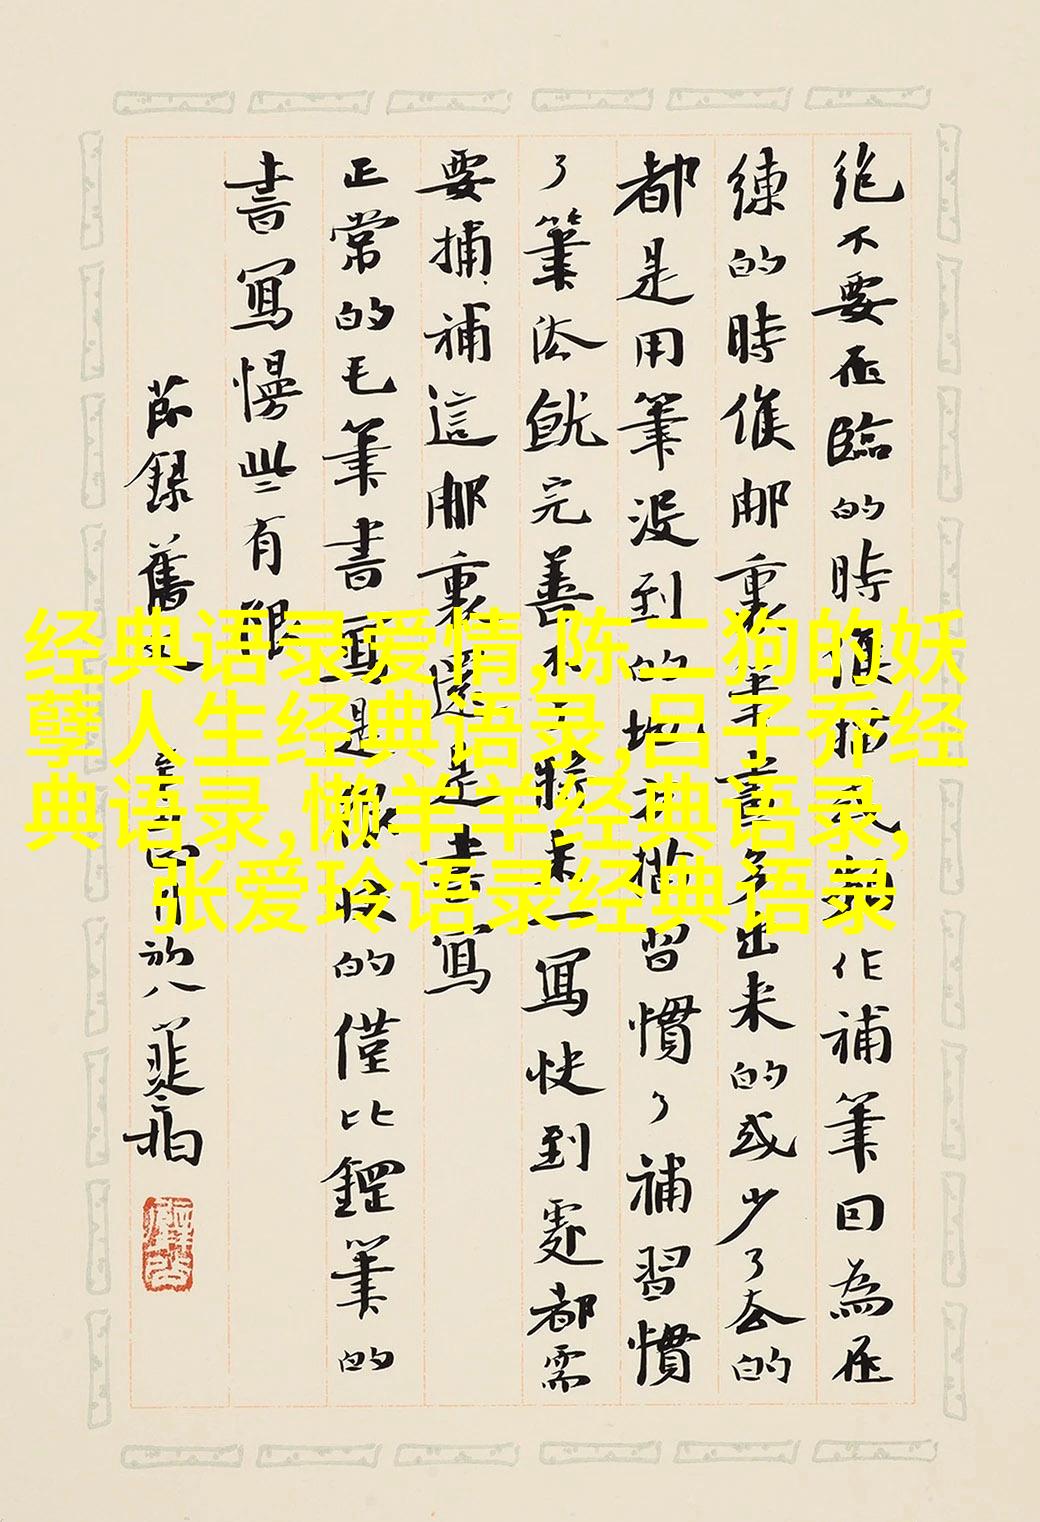 绝不要在临的時候描或叛作補筆因為在
練的時候那裏筆畫多出来的或少了去的
都是用筆没到的地方描習慣了補習慣
了筆法就完善不了将来一写快到處都需
要捕補這那裏還是書寫
正常的毛筆書画是很收的僅比鋼筆的
書寫慢些有限
節録舊
於八
经典语录爱情,陈二狗的妖
孽人生经典语录,吕子乔经
典语录,懒羊羊经典语录,
张爱玲语录经典语录